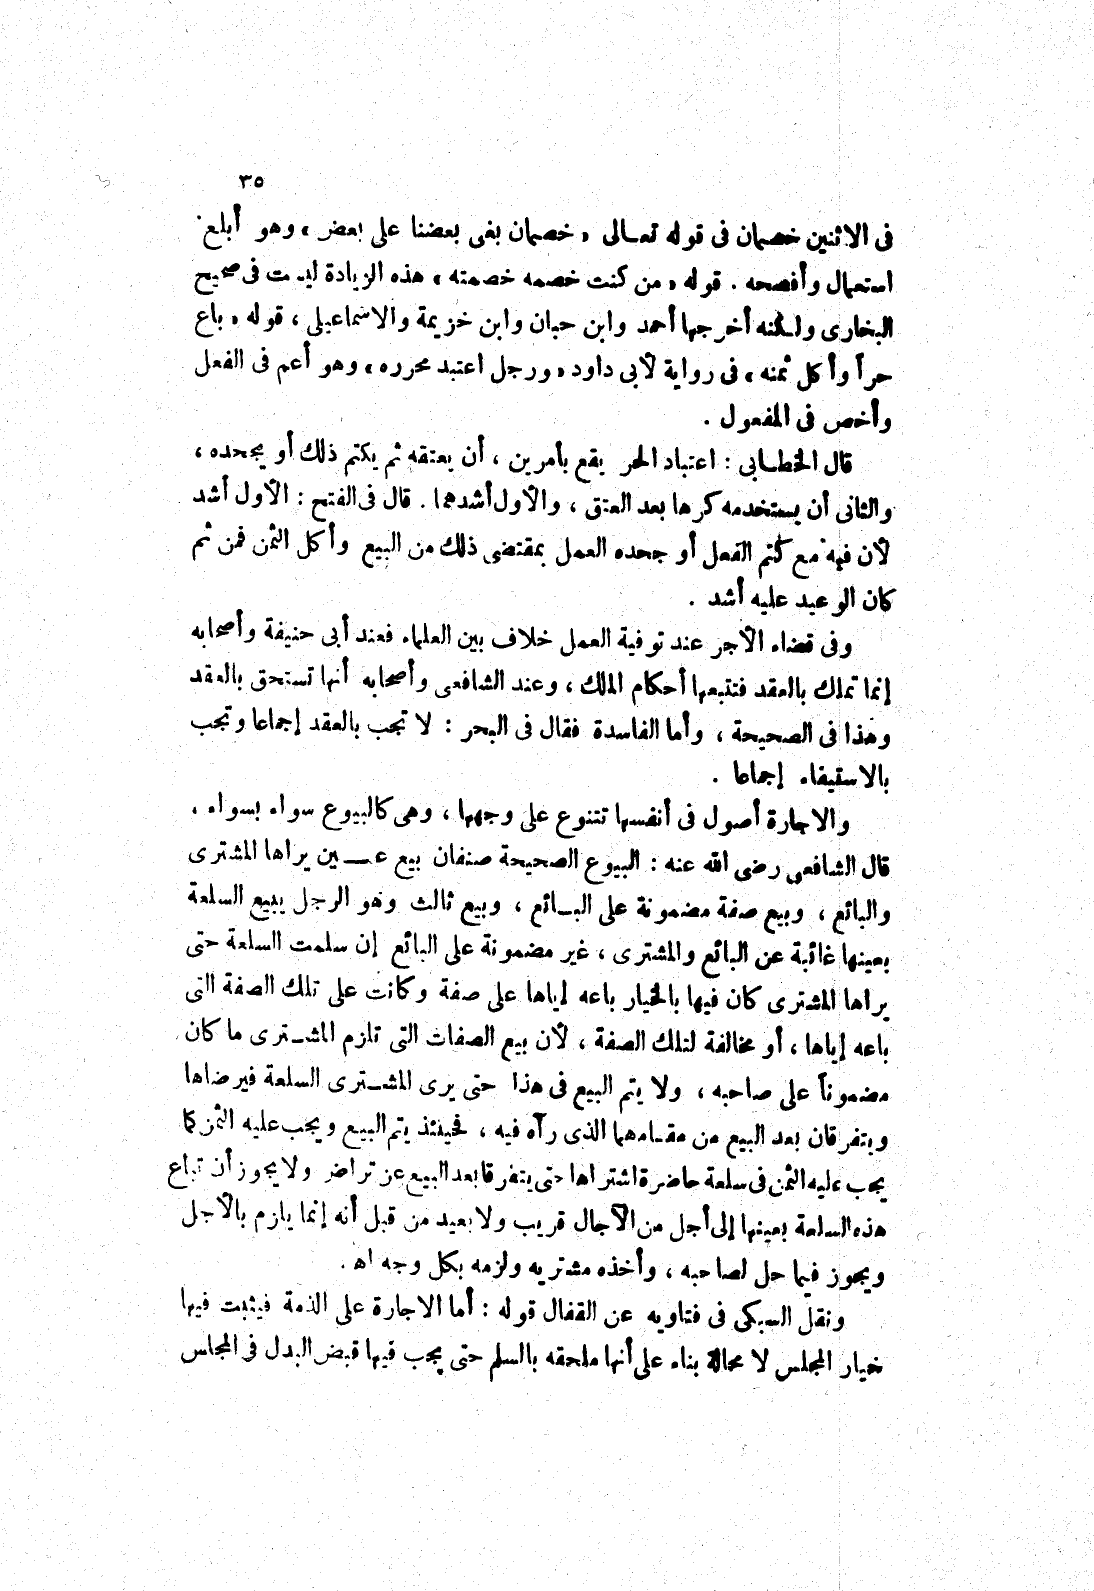 ٣٥
فى الاثنين خصمان فى قوله تعالى « خصمان بغى بعضنا على بعض » وهو أبلغ
استعمال وأفصحه . قوله « من كنت خصمه خصمته » هذه الزيادة ليست فى صحيح
البخارى ولكنه أخرجها أحمد وابن حبان وابن خزيمة والاسماعيلى ، قوله « باع
حراً وأكل ثمنه » فى رواية لأبى داود « ورجل اعتبد محرره » وهو أعم فى الفعل
وأخص فى المفعول .
قال الخطابى : اعتباد الحر يقع بأمرين ، أن يعتقه ثم يكتم ذلك أو يجحده ،
والثانى أن يستخدمه كرها بعد العتق ، والأول أشدهما . قال فى الفتح : الأول أشد
لأن فيه مع كتم الفعل أو جحده العمل بمقتضى ذلك من البيع وأكل الثمن فمن ثم
كان الوعيد عليه أشد .
وفى قضاء الأجر عند توفية العمل خلاف بين العلماء فعند أبى حنيفة وأصحابه
إنما تملك بالعقد فتتبعها أحكام الملك ، وعند الشافعى وأصحابه أنها تستحق بالعقد
وهذا فى الصحيحة ، وأما الفاسدة فقال فى البحر : لا تجب بالعقد إجماعا وتجب
بالاستيفاء إجماعا .
والاجارة أصول فى أنفسها تتنوع على وجهها ، وهى كالبيوع سواء بسواء .
قال الشافعى رضى الله عنه : البيوع الصحيحة صنفان بيع عين يراها المشترى
والبائع ، وبيع صفة مضمونة على البائع ، وبيع ثالث وهو الرجل يبيع السلعة
بعينها غائبة عن البائع والمشترى ، غير مضمونة على البائع إن سلمت السلعة حتى
يراها المشترى كان فيها بالخيار باعه إياها على صفة وكانت على تلك الصفة التى
باعه إياها ، أو مخالفة لتلك الصفة ، لأن بيع الصفات التى تلزم المشترى ما كان
مضموناً على صاحبه ، ولا يتم البيع فى هذا حتى يرى المشترى السلعة فيرضاها
ويتفرقان بعد البيع من مقامهما الذى رآه فيه ، فحينئذ يتم البيع ويجب عليه الثمن كما
يجب عليه الثمن فى سلعة حاضرة اشتراها حتى يتفرقا بعد البيع عن تراض ولا يجوز أن تباع
هذه السلعة بعينها إلى أجل من الآجال قريب ولا بعيد من قبل أنه إنما يلزم بالأجل
ويجوز فيما حل لصاحبه ، وأخذه مشتريه ولزمه بكل وجه اه .
ونقل السبكى فى فتاويه عن القفال قوله : أما الاجارة على الذمة فيثبت فيها
خيار المجلس لا محالة بناء على أنها ملحقه بالسلم حتى يجب فيها قبض البدل فى المجلس